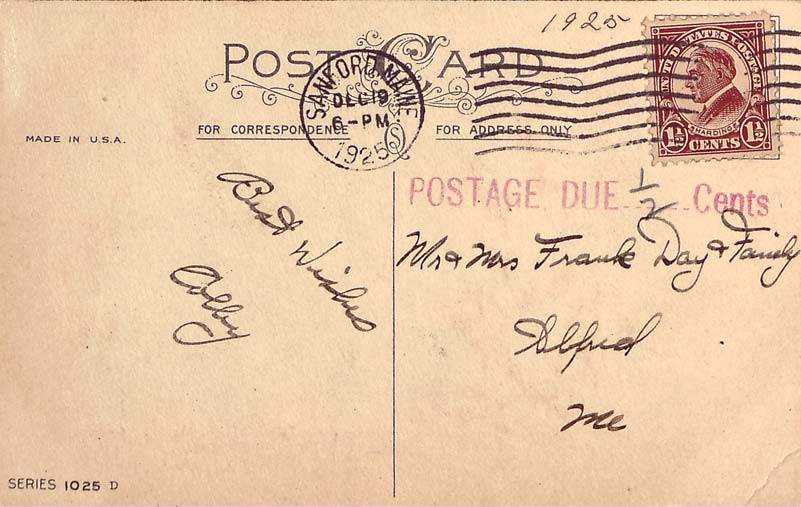 1925
POST CARD
UNITED STATES POSTAGE
HARDING
1½ CENTS 1½
SANFORD, MAINE
DEC 19
6-PM
1925
S
FOR CORRESPONDENCE
FOR ADDRESS ONLY
MADE IN U.S.A.
POSTAGE DUE 1/2 Cents
Best Wishes
Colby
Mr & Mrs Frank Day & Family
Alfred
Me
SERIES 1025 D